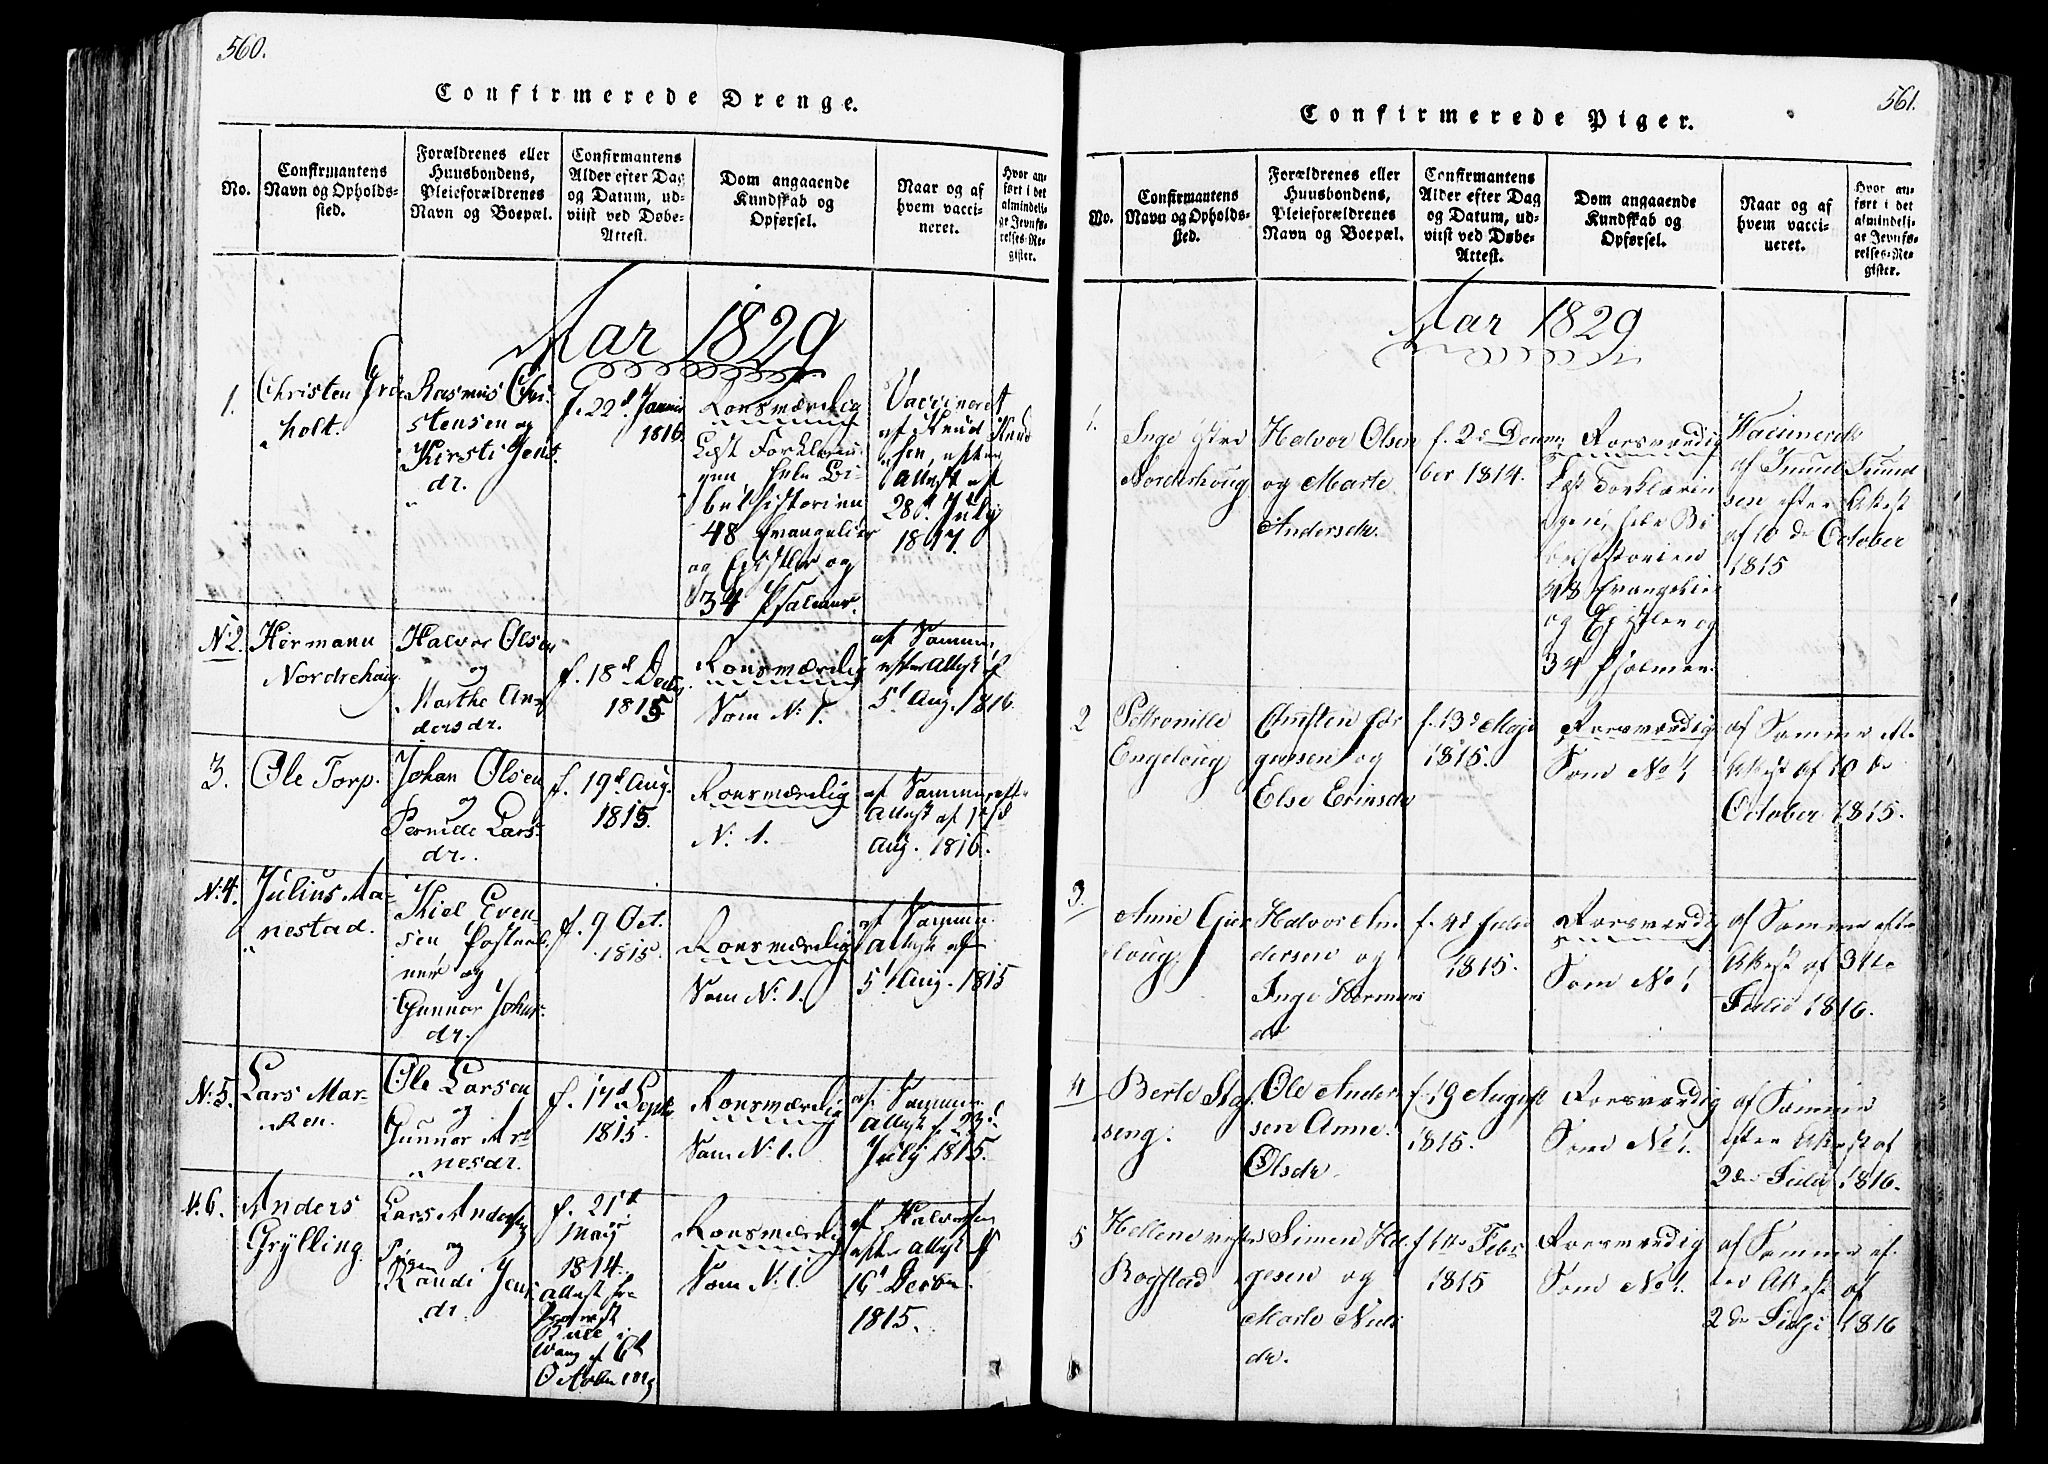 560.
Confirmerede Drenge.
No.
Confirmantens
Navn og Opholds-
sted.
Forældrenes eller
Huusbondens,
Pleieforældrenes
Navn og Boepæl.
Confirmantens
Alder efter Dag
og Datum, ud-
viist ved Døbe-
Attest.
Dom angaaende
Kundskab og
Opførsel.
Naar og af
hvem vacci-
neret.
Hvor an-
ført i det
almindeli-
ge Jevnfø-
relses-Re-
gister.
Aar 1829
1.
Christen Grø
holt.
Rasmus Chri-
stensen og
Kirsti Jens
dr.
f. 22d Januar
1816.
Roesværdig
Læst Forklarin-
gen hele Bi-
belhistorien
48 Evangelier
og Epistler og
34 Psalmer.
Vaccineret
af Knud Knud
sen, efter
Attest af
28d July
1817.
N: 2.
Hermann
Nordrehaug
Halvor Olsen
og
Marthe An-
dersdr.
f. 18d Decbr.
1815
Roesværdig
Som N: 1.
af Samme
efter Attest af
5d Aug. 1816.
3.
Ole Torp.
Johan Olsen
og
Pernide Lars-
dr.
f. 19d Aug.
1815.
Roesværdig
N: 1.
af Samme eft-
Attest af
Aug. 1816.
N: 4.
Julius Aa-
nestad.
Kiel Even-
sen
og
Gunnor Johns-
dr.
f. 9 Oct.
1815.
Roesværdig
Som N: 1.
af Samme
Attest af
5d Aug. 1815
N: 5.
Lars Mar-
ken.
Ole Larsen
og
Gunnor Ar-
nesdr.
f. 17d Septr
1815.
Roesværdig
Som N: 1.
af Samme
Attest af 23d
July 1815.
N: 6.
Anders
Grylling.
Lars Andersen
og
Randi Jens
dr.
f. 21d
May
1814.
Attest fra
i
Wang af 6d
October 1829
Roesværdig
Som N: 1.
af Halvorsen
efter Attest af
16d Decbr.
1815.
561.
Confirmerede Piger.
No.
Confirmantens
Navn og Opholds-
sted.
Forældrenes eller
Huusbondens,
Pleieforældrenes
Navn og Boepæl.
Confirmantens
Alder efter Dag
og Datum, ud-
viist ved Døbe-
Attest.
Dom angaaende
Kundskab og
Opførsel.
Naar og af
hvem vacci-
neret.
Hvor an-
ført i det
almindeli-
ge Jevnfø-
relses-Re-
gister.
Aar 1829
1.
Inge
Norderhoug
Halvor Olsen
og Marte
Andersdr.
f. 2d Decem
ber 1814.
Roesværdig
Læst Forklarin
gen, hele Bi
belhistorien
48 Evangelier
og Epistler og
34 Psalmer.
Vaccineret
af Knud Knud
sen efter Attest
af 10de October
1815
2
Petronille
Engeloug
Christen Jør
gensen og
Else Erichsdr
f. 13d Maji
1815.
Roesværdig
Som No 1
af Samme efter
Attest af 10de
October 1815.
3.
Anne Gur
loug.
Halvor An
dersen og
Inge Hermans
dr
f. 4d Julii
1815.
Roesværdig
Som No 1
af Samme efter
Attest af 31te
Julii 1816.
4
Berte Sta
seng.
Ole Ander
sen Anne
Olsdr.
f. 19 August
1815.
Roesværdig
Som No 1.
af Samme
efter Attest af
2den Julii 1816.
5
Hellene
Rogstad
Simen Hel
gesen og
Marte Niels
dr.
f. 14de Febr
1815
Roesværdig
Som No 1.
af Samme ef-
ter Attest af
2den Julii 1816